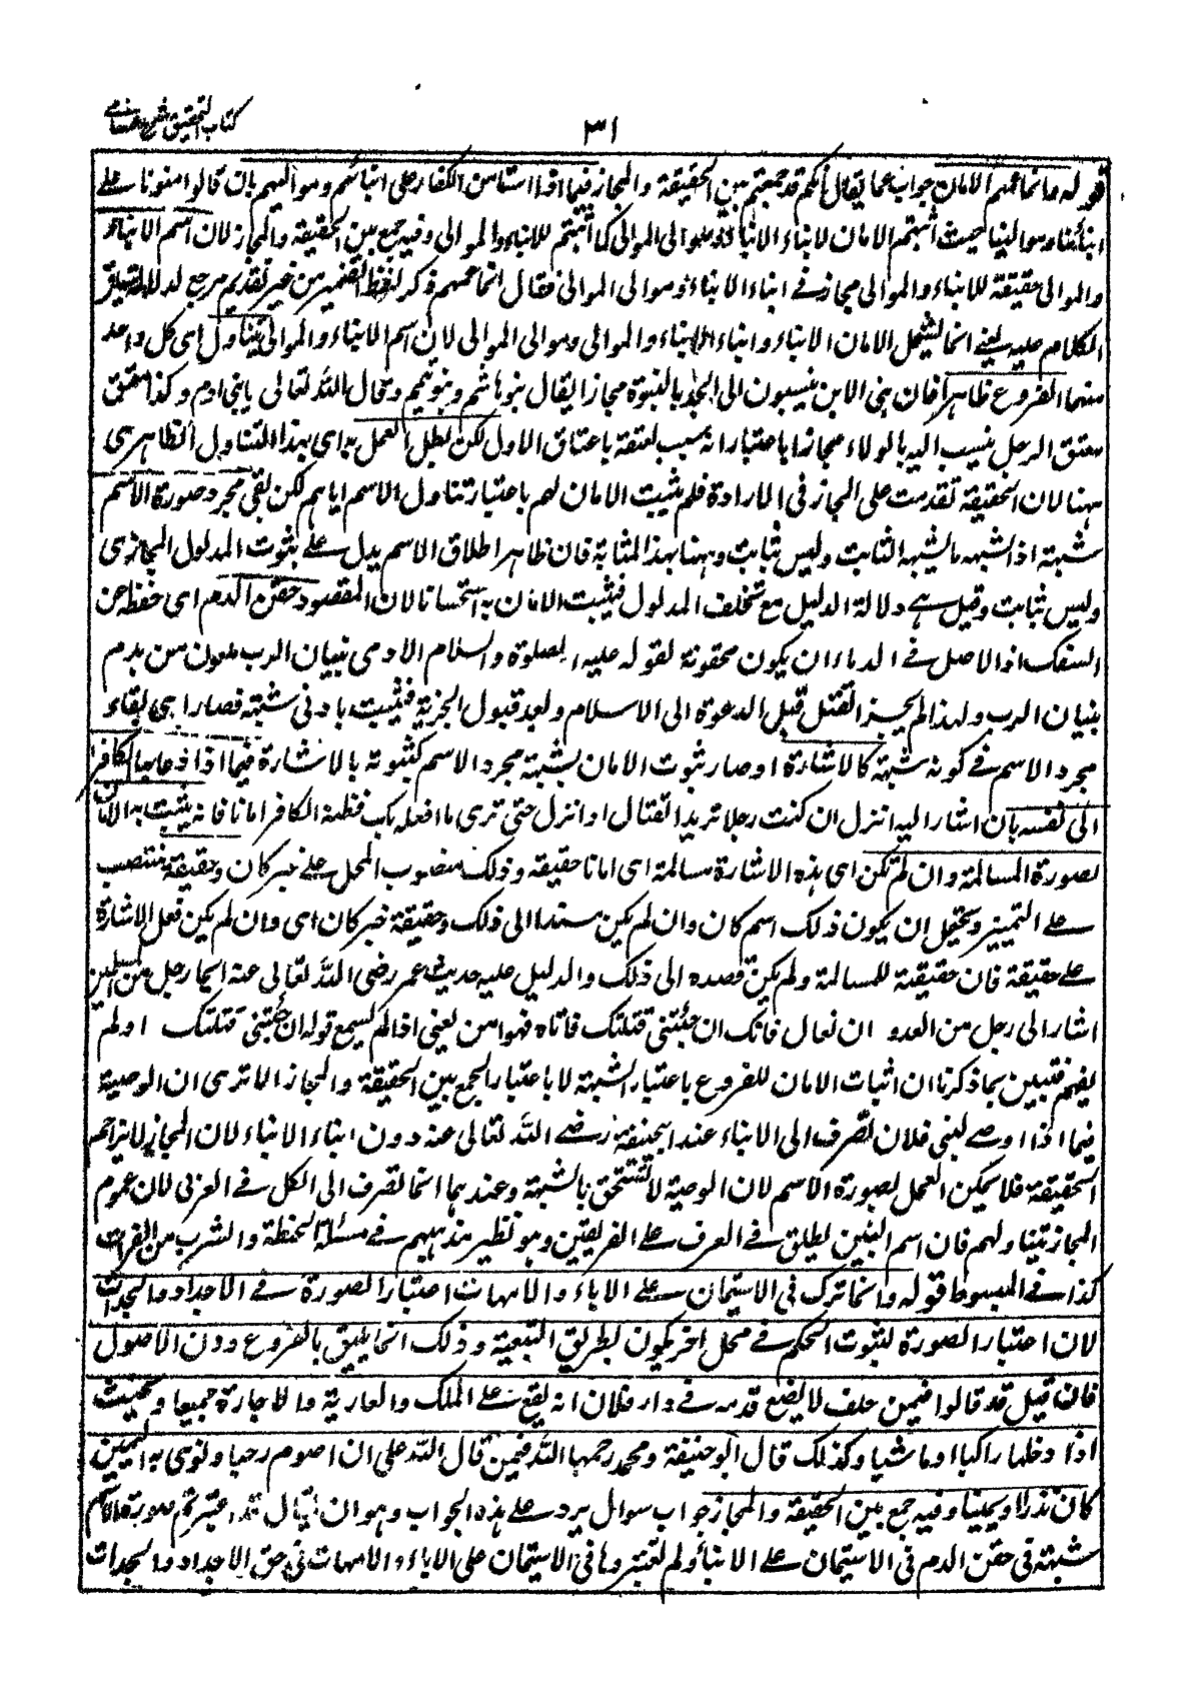 كتاب التحقيق شرح حسامي
٣١
قوله وانما عمهم الامان جواب عما يقال انكم قد جمعتم بين الحقيقة والمجاز فيما اذا استامن الكفار على ابنائهم ومواليهم بان قالوا امنونا على
ابنائنا وموالينا حيث اثبتم الامان لابناء الابناء وموالى الموالى كما اثبتم للابناء والموالى وفيه جمع بين الحقيقة والمجاز لان اسم الابناء
والموالى حقيقة للابناء والموالى مجاز فى ابناء الابناء وموالى الموالى فقال انما عمهم ذكر لفظ الضمير من غير تقديم مرجع لدلالة سياق
الكلام عليه يعنى انما يشمل الامان الابناء وابناء الابناء والموالى وموالى الموالى لان اسم الابناء والموالى يتناول اى كل واحد
منهما الفروع ظاهرا فان بنى الابن ينسبون الى الجد بالبنوة مجازا يقال بنو هاشم وبنو تميم وقال الله تعالى يا بنى ادم وكذا معتق
معتق الرجل ينسب اليه بالولاء مجازا باعتبار انه سبب لعتقه باعتاق الاول لكن بطل العمل به اى بهذا التناول الظاهرى
ههنا لان الحقيقة تقدمت على المجاز فى الارادة فلم يثبت الامان لهم باعتبار تناول الاسم اياهم لكن بقى مجرد صورة الاسم
شبهة اذ الشبهه ما يشبه الثابت وليس بثابت وههنا بهذا المثابة فان ظاهر اطلاق الاسم يدل على ثبوت المدلول المجازى
وليس بثابت وقيل هى دلالة الدليل مع تخلف المدلول فيثبت الامان به استحسانا لان المقصود حقن الدم اى حفظه عن
السفك اذ الاصل فى الدماء ان يكون محقونة لقوله عليه الصلوة والسلام الادمى بنيان الرب ملعون من هدم
بنيان الرب ولهذا لم يجز القتل قبل الدعوة الى الاسلام وبعد قبول الجزية فيثبت بادنى شبهة فصار اى بقاء
مجرد الاسم فى كونه شبهة كالاشارة او صار ثبوت الامان بشبهة مجرد الاسم كثبوته بالاشارة فيما اذا دعا بها الكافر
الى نفسه بان اشار اليه انزل ان كنت رجلا تريد القتال او انزل حتى ترى ما افعله بك فظنه الكافر امانا فانه يثبت به الامان
بصورة المسالمة وان لم تكن اى هذه الاشارة مسالمة اى امانا حقيقة وذلك منصوب المحل على خبر كان وحقيقة منتصب
على التمييز ويحتمل ان يكون ذلك اسم كان وان لم يكن مسندا الى ذلك وحقيقة خبر كان اى وان لم يكن فعل الاشارة
على حقيقة فان حقيقته للمسالمة ولم يكن قصده الى ذلك والدليل عليه حديث عمر رضى الله تعالى عنه ايما رجل من المسلمين
اشار الى رجل من العدو ان تعال فانك ان جئتنى قتلتك فاتاه فهو امن يعنى اذا لم يسمع قوله ان جئتنى قتلتك او لم
يفهم فتبين بما ذكرنا ان اثبات الامان للفروع باعتبار الشبهة لا باعتبار الجمع بين الحقيقة والمجاز الا ترى ان الوصية
فيما اذا اوصى لبنى فلان تصرف الى الابناء عند ابى حنيفة رضى الله تعالى عنه دون ابناء الابناء لان المجاز لا يزاحم
الحقيقة فلا يمكن العمل بصورة الاسم لان الوصية لا تستحق بالشبهة وعندهما انما تصرف الى الكل فى العرف لان عموم
المجاز يتناولهم فان اسم البنين يطلق فى العرف على الفريقين وهو نظير مذهبهم فى مسئلة الحنطة والشرب من الفرات
كذا فى المبسوط قوله وانما ترك فى الاستيمان على الاباء والامهات اعتبار الصورة فى الاجداد والجدات
لان اعتبار الصورة لثبوت الحكم فى محل اخر يكون بطريق التبعية وذلك انما يليق بالفروع دون الاصول
فان قيل قد قالوا فيمن حلف لا يضع قدمه فى دار فلان انه يقع على الملك والعارية والاجارة جميعا ويحنث
اذا دخلها راكبا او ماشيا وكذلك قال ابو حنيفة ومحمد رحمهما الله فيمن قال لله على ان اصوم رجبا ونوى به اليمين
كان نذرا ويمينا وفيه جمع بين الحقيقة والمجاز جواب سوال يرد على هذه الجواب وهو ان يقال قد اعتبرتم صورة الاسم
شبهة فى حقن الدم فى الاستيمان على الابناء ولم تعتبروها فى الاستيمان على الاباء والامهات فى حق الاجداد والجدات